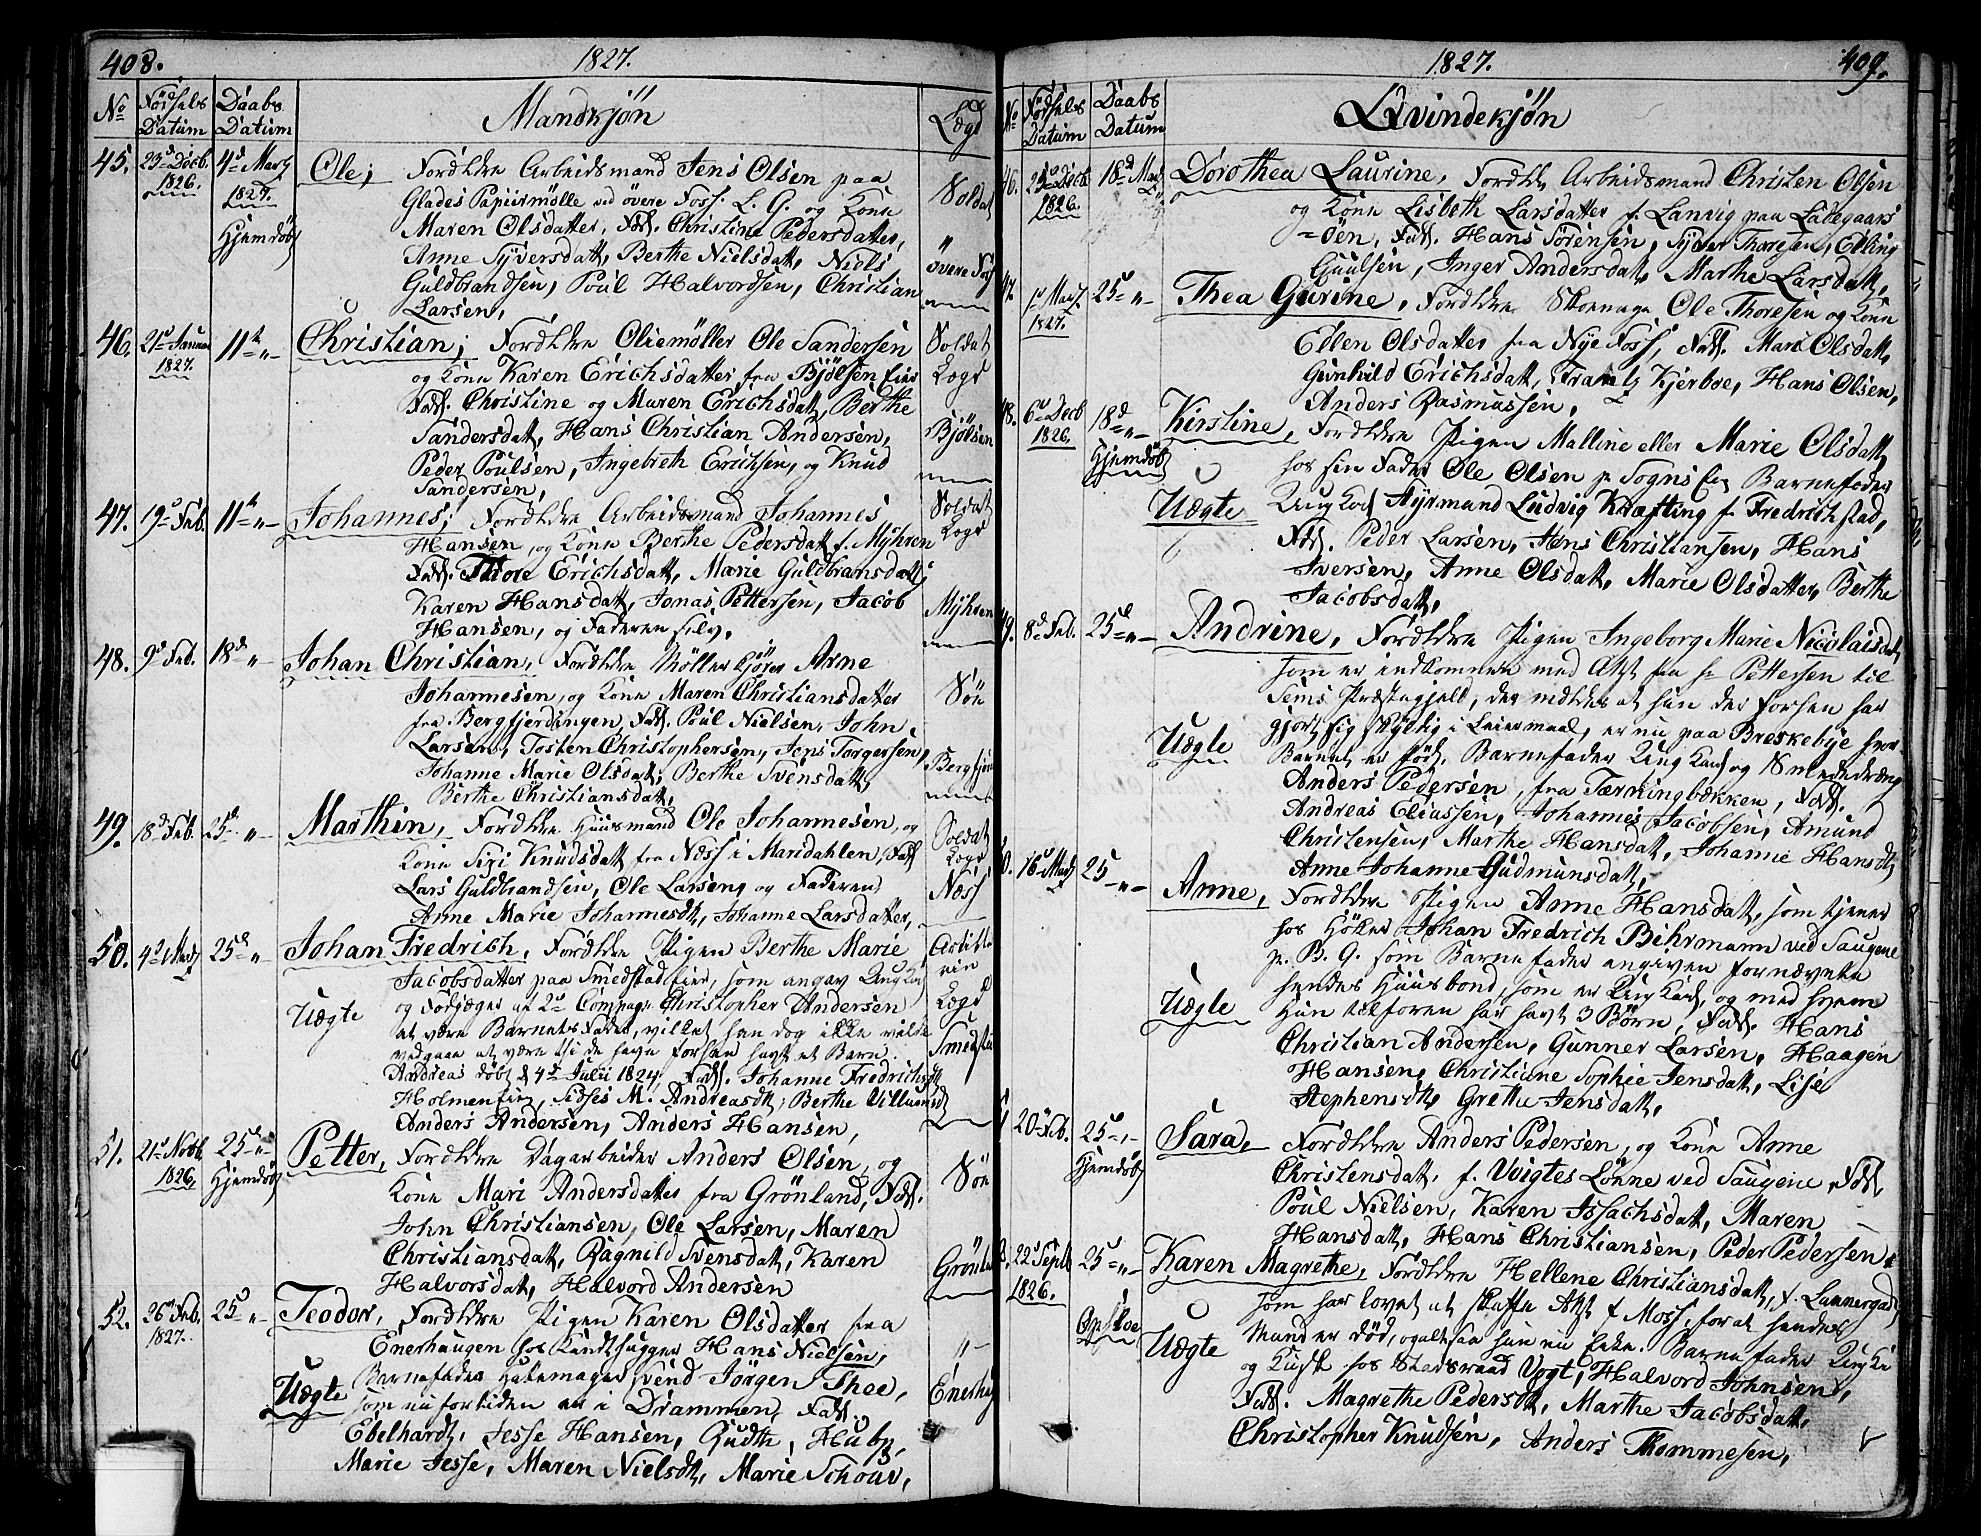 408.
1827.
No Fødsels Datum Daabs Datum Mandkjøn Lægd
45. 23d Decb. 1826. 4d Marz 1827. Hjemdøb
Ole; Forældre Arbeidsmand Jens Olsen paa
Glades Papiirmølle ved øvere Foss. L. G. og Kone
Maren Olsdatter, Fad. Christine Pedersdatter,
Anne Syversdatt, Berthe Nielsdatt, Niels
Guldbrandsen, Poul Halvordsen, Christian
Larsen,
Soldat " øvere Foss
46. 21d Januar 1827. 11te "
Christian; Forældre Oliemøller Ole Sandersen
og Kone Karen Erichsdatter fra Bjølsen Eier
Fad. Christine og Maren Erichsdatt, Berthe
Sandersdatt, Hans Christian Andersen,
Peder Poulsen, Ingebreth Erichsen, og Knud
Sandersen,
Soldat Lægd Bjølsen
47. 19d Feb. 11te "
Johannes; Forældre Arbeidsmand Johannes
Hansen, og Kone Berthe Pedersdatt f. Myhren
Fad. Thore Erichsdatt, Marie Guldbransdatt,
Karen Hansdatt, Jonas Pettersen, Jacob
Hansen, og Faderen selv.
Soldat Lægd Myhren
48. 9d Feb. 18d "
Johan Christian, Forældre Møller Arne
Johannesen, og Kone Maren Christiansdatter
fra Bergfjerdingen, Fad. Poul Nielsen, John
Larsen, Tosten Christophersen, Jens Torgersen,
Johanne Marie Olsdat; Berthe Svensdatt,
Berthe Christiansdatt,
Søn Bergfjer
49. 18d Feb. 25d "
Marthin, Forældre Huusmand Ole Johannesen, og
Kone Siri Knudsdatt fra Næss i Maridahlen, Fad
Lars Guldbrandsen, Ole Larseng og Faderen
Anne Marie Johannesdt, Johanne Larsdatter,
Soldat Lægd Næss
50. 4d Marz 25d "
Johan Fredrich, Forældre Pigen Berthe Marie
Jacobsdatter paa Smedstad Eier, som angav Ung Karl
Uægte
og Fodjæger af 2d Compag: Christopher Andersen
at være Barnets Fader, vilket han dog ikke vilde
vedgaae at være thi de have forhen havt et Barn
Andreas døbt d 4d Julii 1824, Fad. Johanne Fredrichsdt
Holmen Eie, Sidses M. Andreasdt, Berthe Villumsdt
Anders Andersen, Anders Hansen,
Lægd Smedstad
51. 21d Novb. 1826. 25d " Hjemdøb
Petter, Forældre Dagarbeider Anders Olsen, og
Kone Mari Andersdatter fra Grønland, Fad.
John Christiansen, Ole Larsen, Maren
Christiansdatt, Ragnild Svensdatt, Karen
Halvorsdat, Halvord Andersen
Søn Grønla
52. 26d Feb. 1827. 25d "
Teodor, Forældre Pigen Karen Olsdatter fra
Enerhaugen hos Hans Nielsen,
Uægte
Barnefader svend Jørgen Thee,
som nu for tiden er i Drammen, Fad.
Ebelhardt, Jesse Hansen, Hubp,
Marie Jesse, Maren Nielsdt, Marie Schouv,
" Enerhau
1827.
409.
No Fødsels Datum Daabs Datum Qvindekjøn
46. Decb 1826. 18d Marz
Dorothea Laurine, Forældre Arbeidsmand Christen Olsen
og Kone Lisbeth Larsdatter f. Lanvig paa Ladegaars
=öen, Fad. Hans Sörensen, Syver Thoresen, Edling
Guulsen, Inger Andersdatt, Marthe Larsdatt,
47. 1d Marz 1827. 25d "
Thea Gurine, Forældre Skomager Ole Thoresen og Kone
Edlen Olsdatter fra Nye Foss, Fad. Mari Olsdatt,
Gunhild Erichsdatt, Frantz Kjerboe, Hans Olsen,
Anders Rasmussen,
48. 6d Decb 1826. 18d " Hjemdøb
Kirstine, Forældre Pigen Malline eller Marie Olsdatt,
hos sin Fader Ole Olsen p. Sogns Eie, Barnefader
Uægte
Ung Karl Styrmand Ludvig Kræfting f. Fredrichstad,
Fad. Peder Larsen, Hans Christiansen, Hans
Iversen, Anne Olsdatt, Marie Olsdatter, Berthe
Jacobsdatt,
49. 8d Feb. 25d "
Andrine, Forældre Pigen Ingeborg Marie Nicolaisdat,
som er indkommen med Atst fra hr Pettersen til
Sems Præstegjeld, der melder at hun der forhen har
Uægte
gjort sig skyldig i Leiermaal, er nu paa Breskebye hvor
Barnet er født. Barnefader Ung Karl og Smededreng
Anders Pedersen, fra Tærningbækken, Fad.
Andreas Eliassen, Johannes Jacobsen, Amund
Christensen, Marthe Hansdatt, Johanne Hansdt
Anne Johanne Gudmunsdatt,
50. 16d Marz 25 "
Anne, Forældre Pigen Anne Hansdatt, som tjener
hos Høker Johan Fredrich Bihrmann ved Saugene
p. B. G. som Barnefader angiven fornævnte
Uægte
hendes Huusbond, som er Ung Karl, og med hvem
hun tilforen har havt 3 Børn, Fad. Hans
Christian Andersen, Gunner Larsen, Haagen
Hansen, Christiane Sophie Jensdatt, Lise
Stephensdt, Grethe Jensdatt,
20d Feb. 25d " Hjemdøb
Sara, Forældre Anders Pedersen, og Kone Anne
Christensdatt. f. Voigtes Lønne ved Saugene, Fad.
Poul Nielsen, Karen Issachsdatt, Maren
Hansdatt, Hans Christiansen, Peder Pedersen
22d Septb 1826. 25d "
Karen Magrethe, Forældre Hellene Christiansdatt, f. Lannergad
som har lovet at skaffe Atst f. Moss, for at hendes
Uægte
Mand er død, ogaltsaa hun nu Enke. Barnefader Ung Karl
og Kudsk hos Stadsraad Vogt, Halvord Johnsen,
Fad. Magrethe Pedersdt, Marthe Jacobsdatt,
Christopher Knudsen, Anders Thommesen,